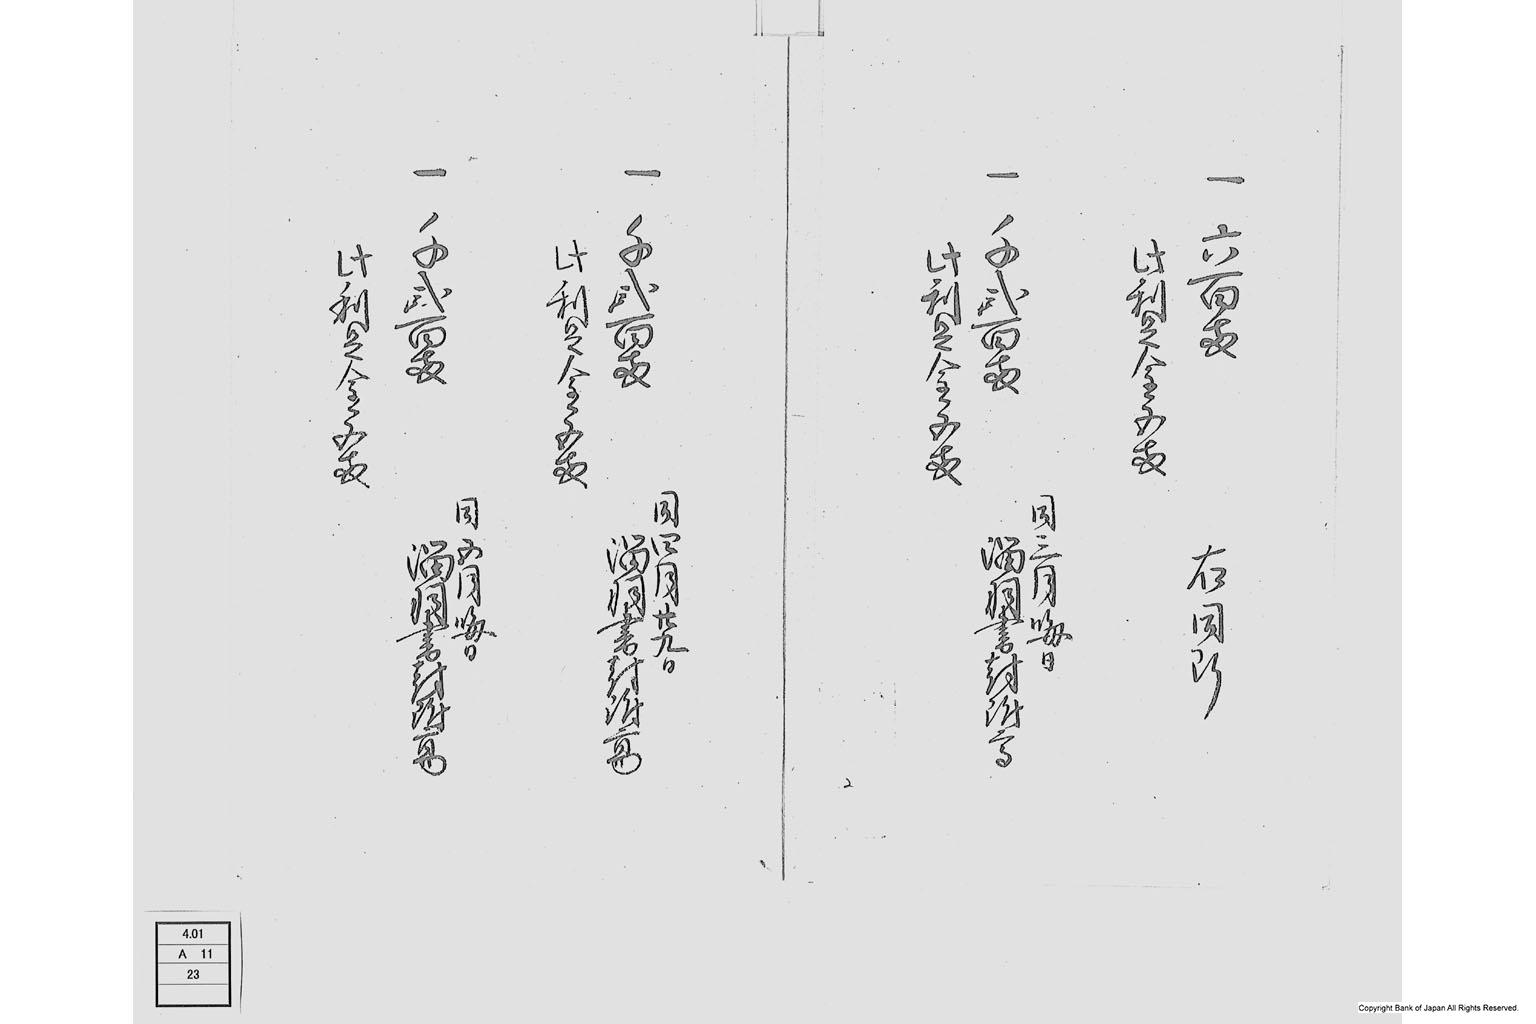 一 六百両
此利足金五両
右同断
一 千弐百両
此利足金五両
同三月晦日
書封附
一 千弐百両
此利足金五両
同四月廿九日
書封附
一 千弐百両
此利足金五両
同五月晦日
書封附
2
4.01
A 11
23
Copyright Bank of Japan All Rights Reserved.